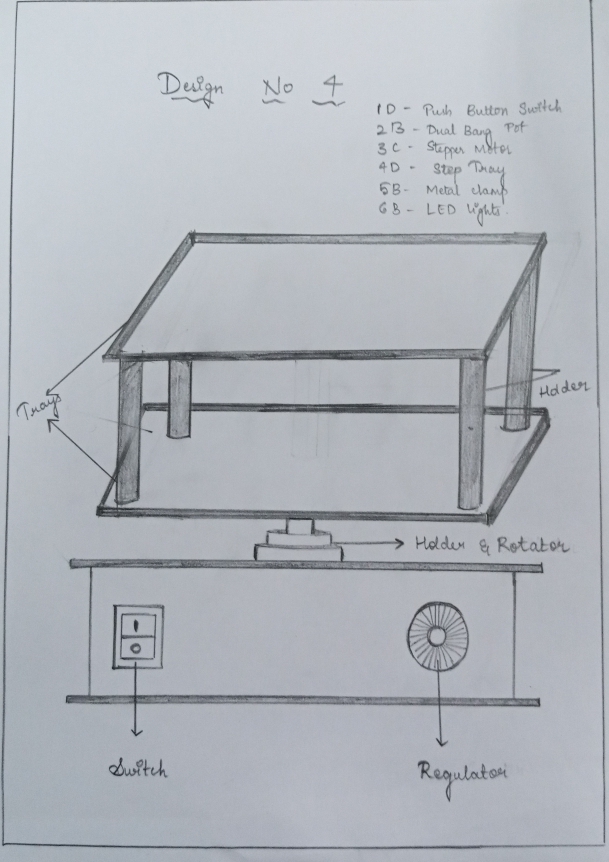 Design No 4
1D - Push Button Switch
2B - Dual Bang Pot
3C - Stepper Motor
4D - Step Tray
5B - Metal clamp
6B - LED lights.
Trays
Holder
Holder & Rotator
Switch
Regulator